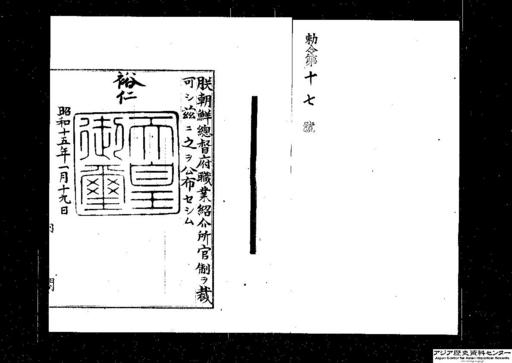 勅令第十七號
朕朝鮮總督府職業紹介所官制ヲ裁
可シ茲ニ之ヲ公布セシム
裕仁
天皇
御璽
昭和十五年一月十九日
内 閣
アジア歴史資料センター
Japan Center for Asian Historical Records